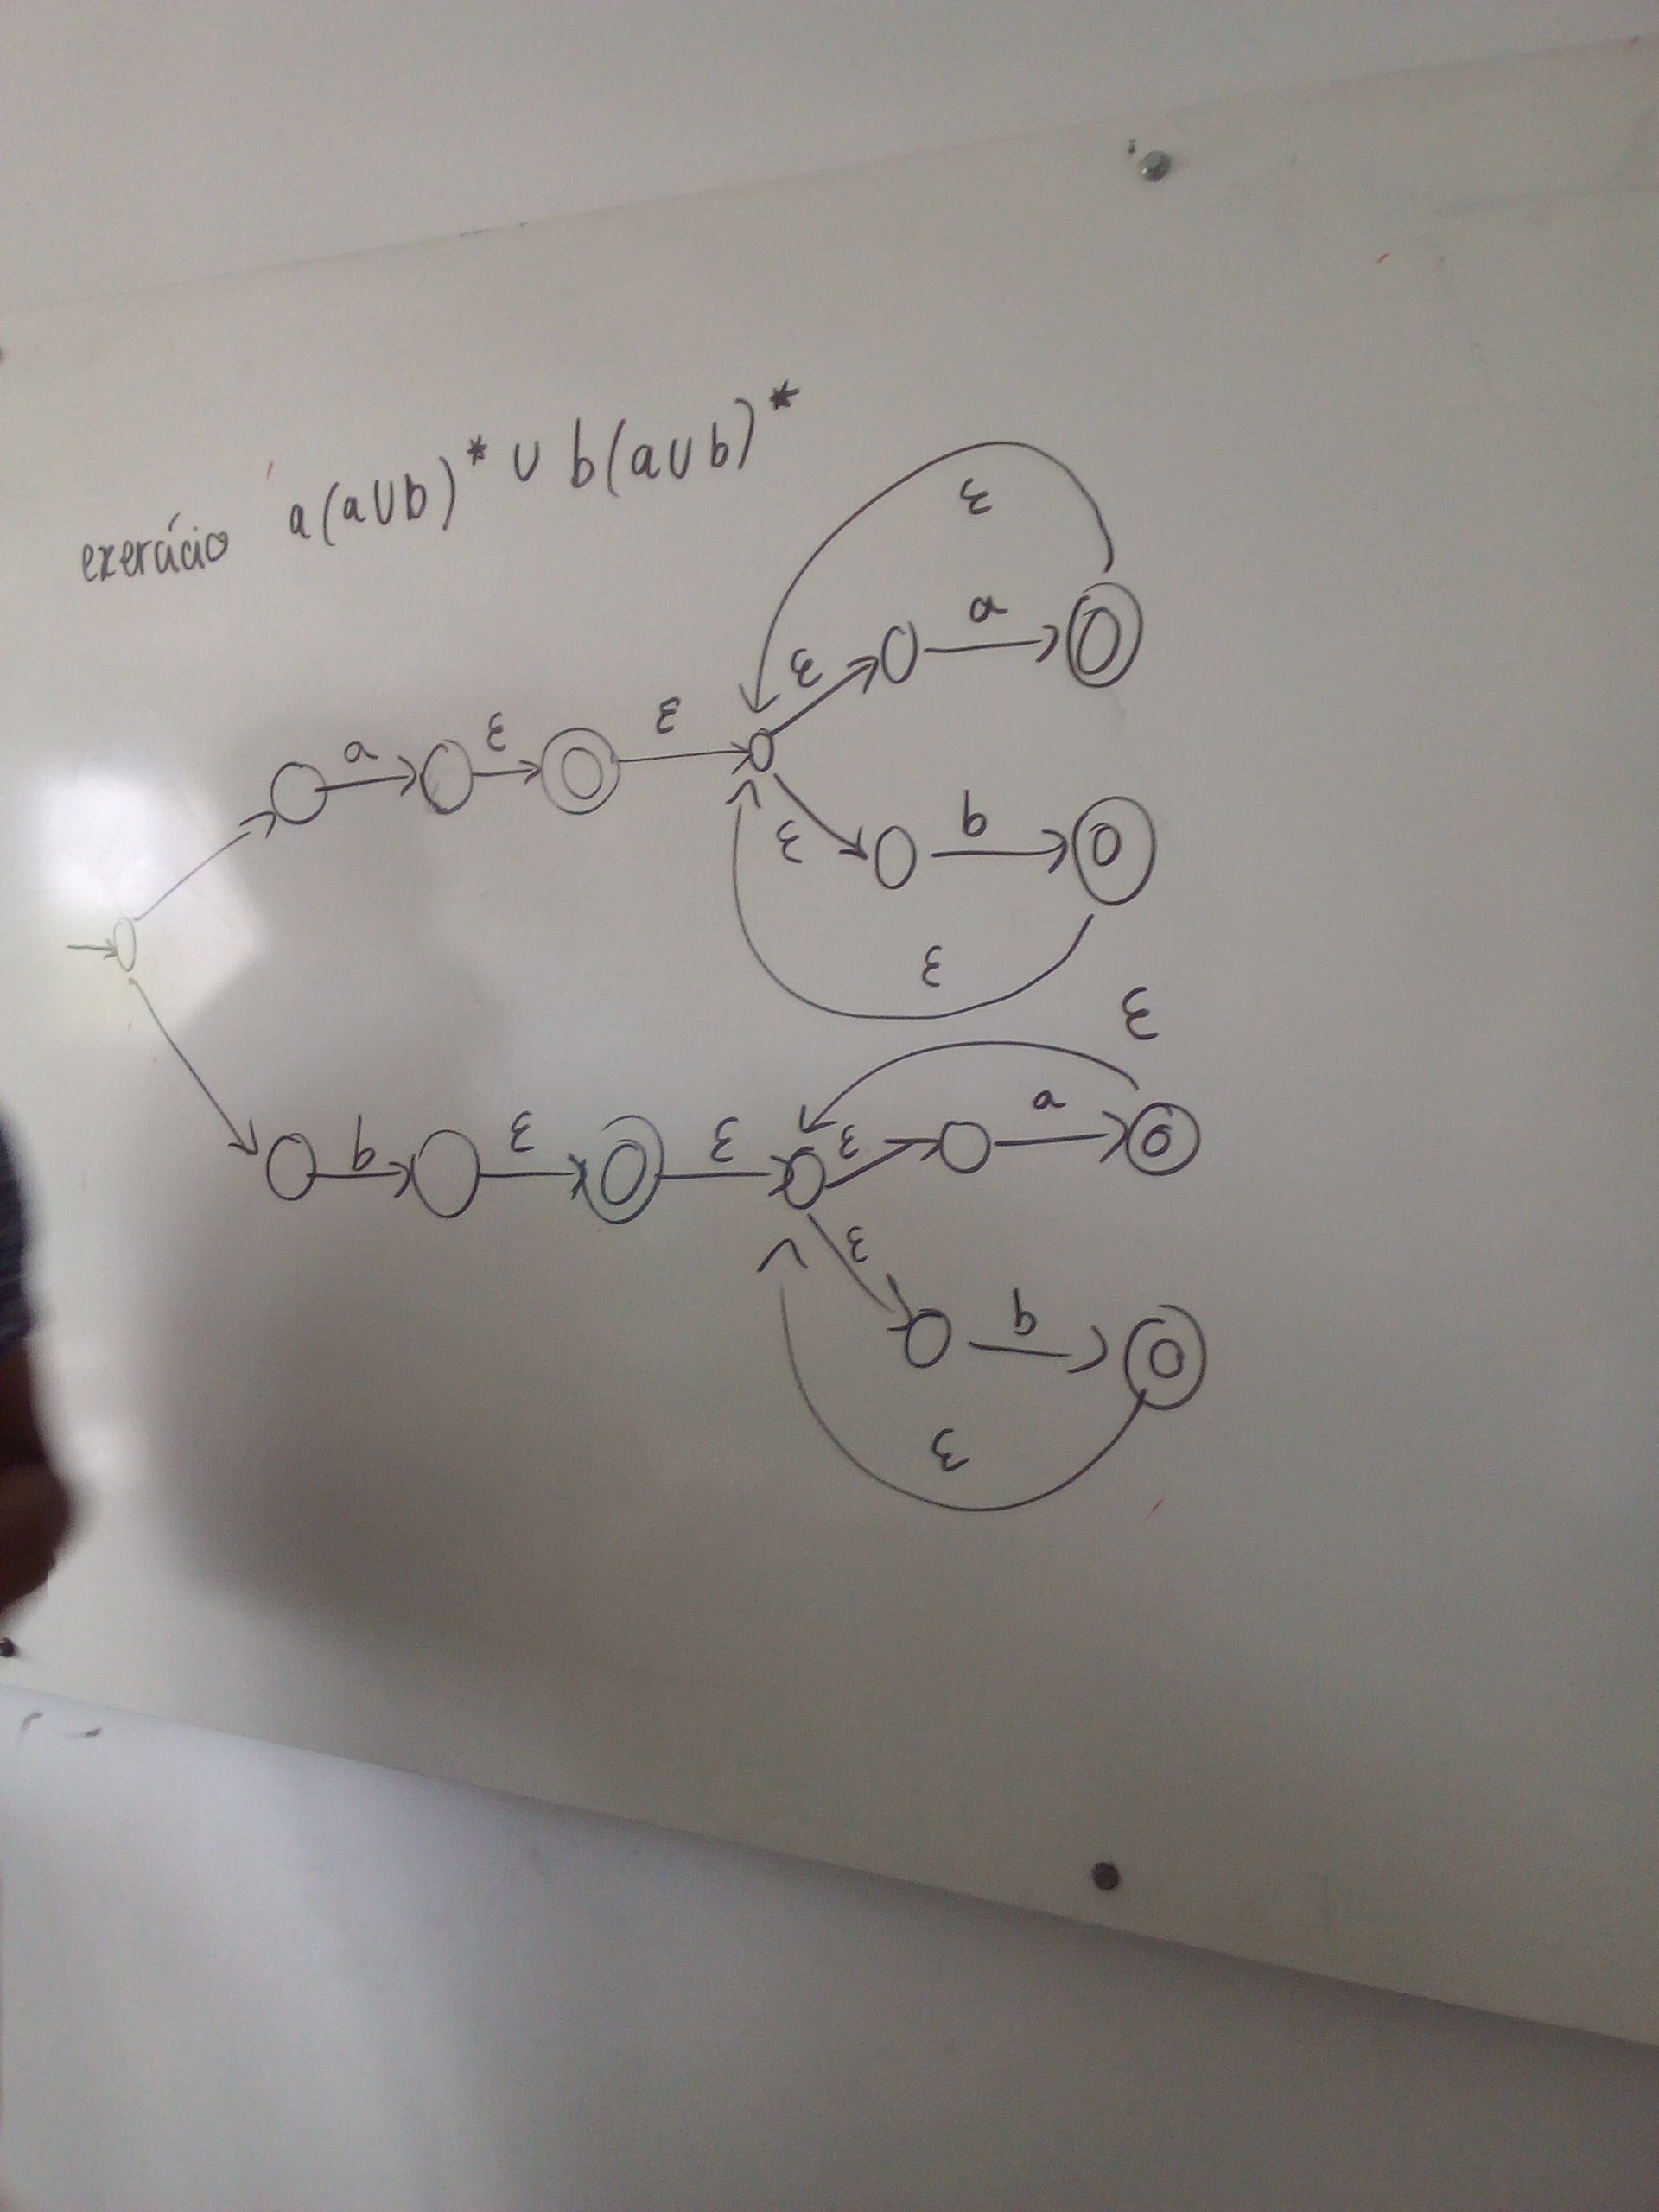 exercício a(a∪b)* ∪ b(a∪b)*
ε
a
ε
a ε ε
ε b
ε
ε
a
b ε ε ε
ε
b
ε